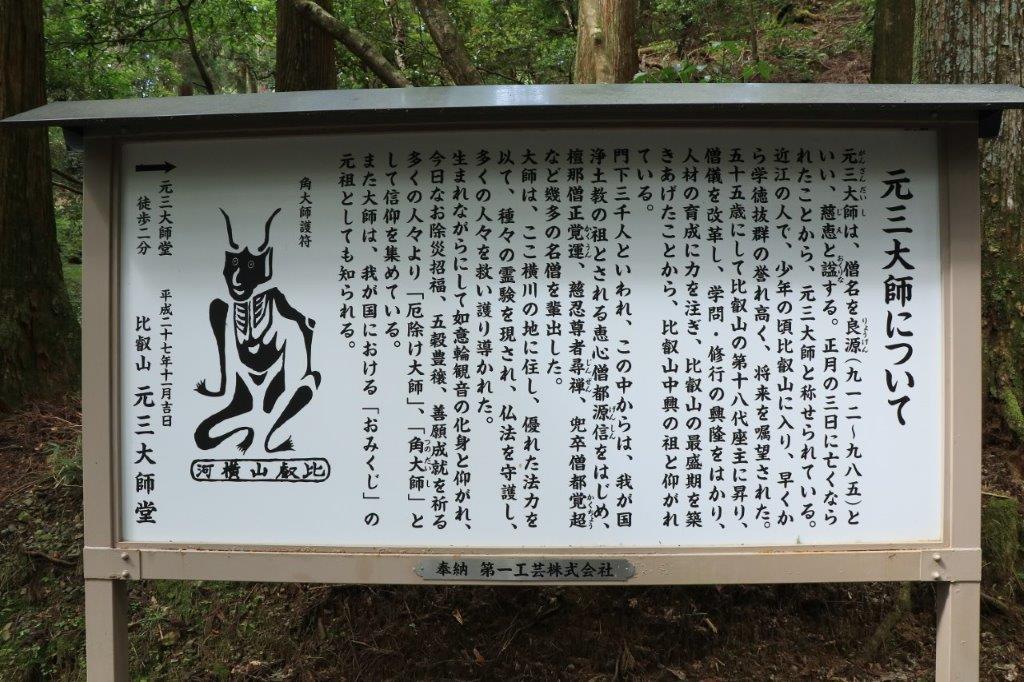 元三大師について
元三大師は、僧名を良源（九一二〜九八五）と
いい、慈恵と諡する。正月の三日に亡くなら
れたことから、元三大師と称せられている。
近江の人で、少年の頃比叡山に入り、早くか
ら学徳抜群の誉れ高く、将来を嘱望された。
五十五歳にして比叡山の第十八代座主に昇り、
僧儀を改革し、学問・修行の興隆をはかり、
人材の育成に力を注ぎ、比叡山の最盛期を築
きあげたことから、比叡山中興の祖と仰がれ
ている。
門下三千人といわれ、この中からは、我が国
浄土教の祖とされる恵心僧都源信をはじめ、
檀那僧正覚運、慈忍尊者尋禅、兜卒僧都覚超
など幾多の名僧を輩出した。
大師は、ここ横川の地に住し、優れた法力を
以て、種々の霊験を現され、仏法を守護し、
多くの人々を救い護り導かれた。
生まれながらにして如意輪観音の化身と仰がれ、
今日なお除災招福、五穀豊穣、善願成就を祈る
多くの人々より「厄除け大師」、「角大師」と
して信仰を集めている。
また大師は、我が国における「おみくじ」の
元祖としても知られる。
角大師護符
比叡山横河
元三大師堂
徒歩二分
平成二十七年十一月吉日
比叡山 元三大師堂
奉納 第一工芸株式会社